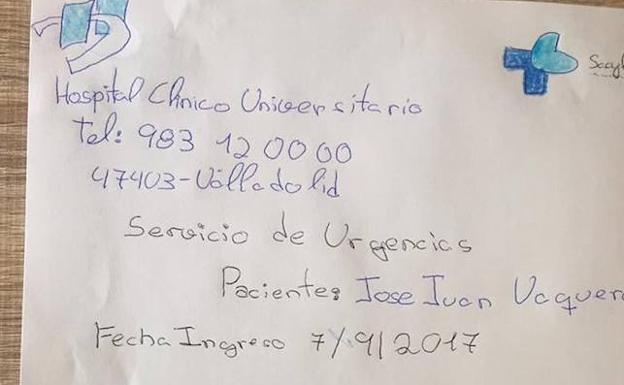 Sacyl
Hospital Clínico Universitario
Tel: 983 12 00 00
47403-Valladolid
Servicio de Urgencias
Paciente: Jose Juan Vaquer
Fecha Ingreso 7/9/2017